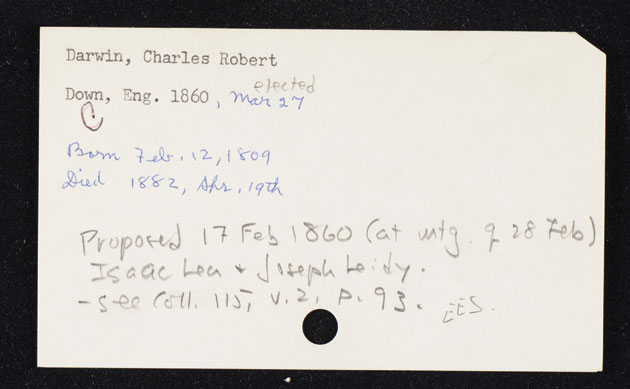 Darwin, Charles Robert
elected
Down, Eng. 1860, Mar 27
C
Born Feb. 12, 1809
Died 1882, Apr. 19th
Proposed 17 Feb 1860 (at mtg. of 28 Feb)
Isaac Lea + Joseph Leidy.
- see Coll. 115, v. 2, p. 93.
EES.